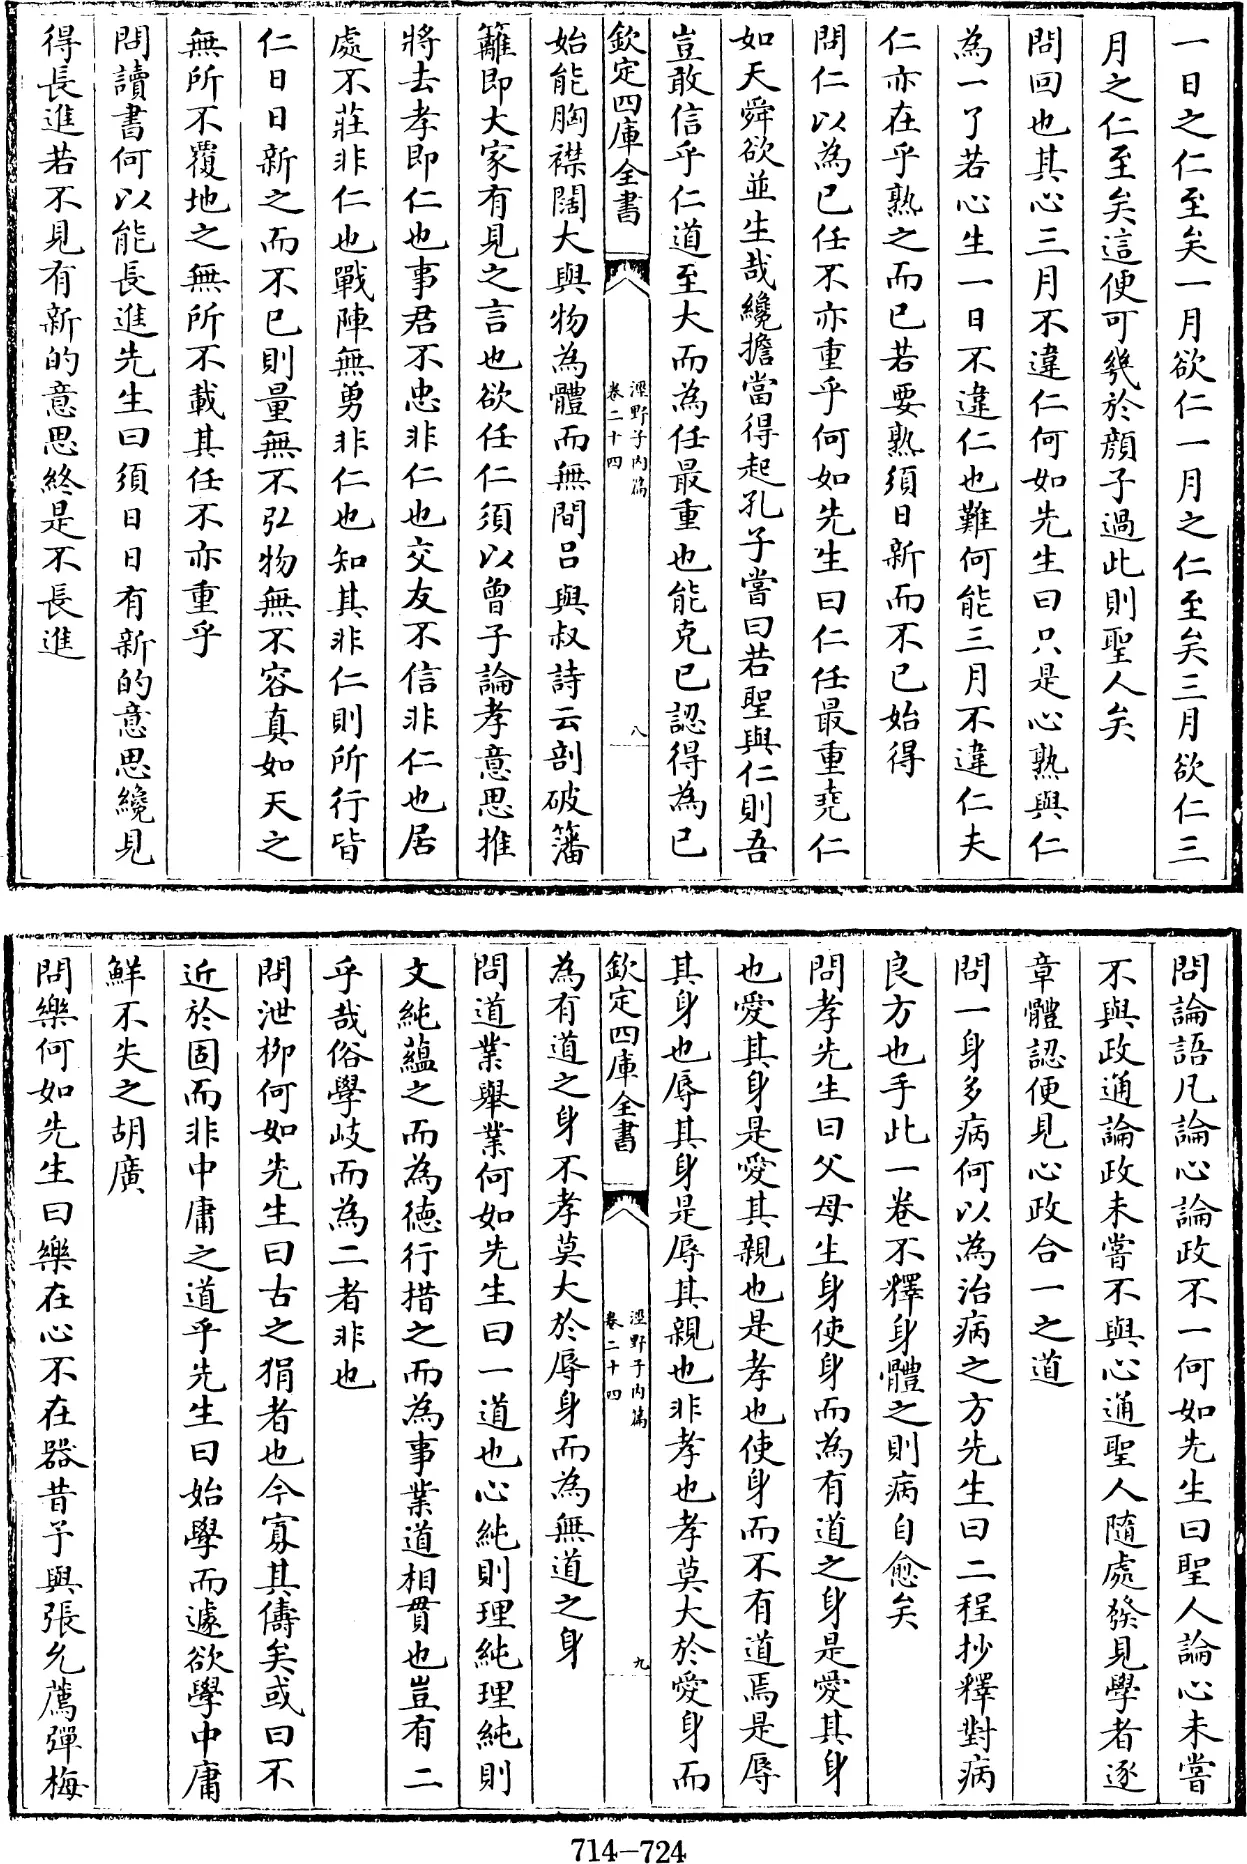 一日之仁至矣一月欲仁一月之仁至矣三月欲仁三
月之仁至矣這便可幾於顔子過此則聖人矣
問回也其心三月不違仁何如先生曰只是心熟與仁
為一了若心生一日不違仁也難何能三月不違仁夫
仁亦在乎熟之而已若要熟須日新而不已始得
問仁以為已任不亦重乎何如先生曰仁任最重堯仁
如天舜欲並生哉纔擔當得起孔子嘗曰若聖與仁則吾
豈敢信乎仁道至大而為任最重也能克已認得為已
欽定四庫全書
涇野子内篇
卷二十四
八
始能胸襟闊大與物為體而無間呂與叔詩云剖破藩
籬即大家有見之言也欲任仁須以曾子論孝意思推
將去孝即仁也事君不忠非仁也交友不信非仁也居
處不莊非仁也戰陣無勇非仁也知其非仁則所行皆
仁日日新之而不已則量無不弘物無不容真如天之
無所不覆地之無所不載其任不亦重乎
問讀書何以能長進先生曰須日日有新的意思纔見
得長進若不見有新的意思終是不長進
問論語凡論心論政不一何如先生曰聖人論心未嘗
不與政通論政未嘗不與心通聖人隨處發見學者逐
章體認便見心政合一之道
問一身多病何以為治病之方先生曰二程抄釋對病
良方也手此一卷不釋身體之則病自愈矣
問孝先生曰父母生身使身而為有道之身是愛其身
也愛其身是愛其親也是孝也使身而不有道焉是辱
其身也辱其身是辱其親也非孝也孝莫大於愛身而
欽定四庫全書
涇野子内篇
卷二十四
九
為有道之身不孝莫大於辱身而為無道之身
問道業舉業何如先生曰一道也心純則理純理純則
文純蘊之而為德行措之而為事業道相貫也豈有二
乎哉俗學岐而為二者非也
問泄柳何如先生曰古之狷者也今寡其儔矣或曰不
近於固而非中庸之道乎先生曰始學而遽欲學中庸
鮮不失之胡廣
問樂何如先生曰樂在心不在器昔予與張允薦彈梅
714-724